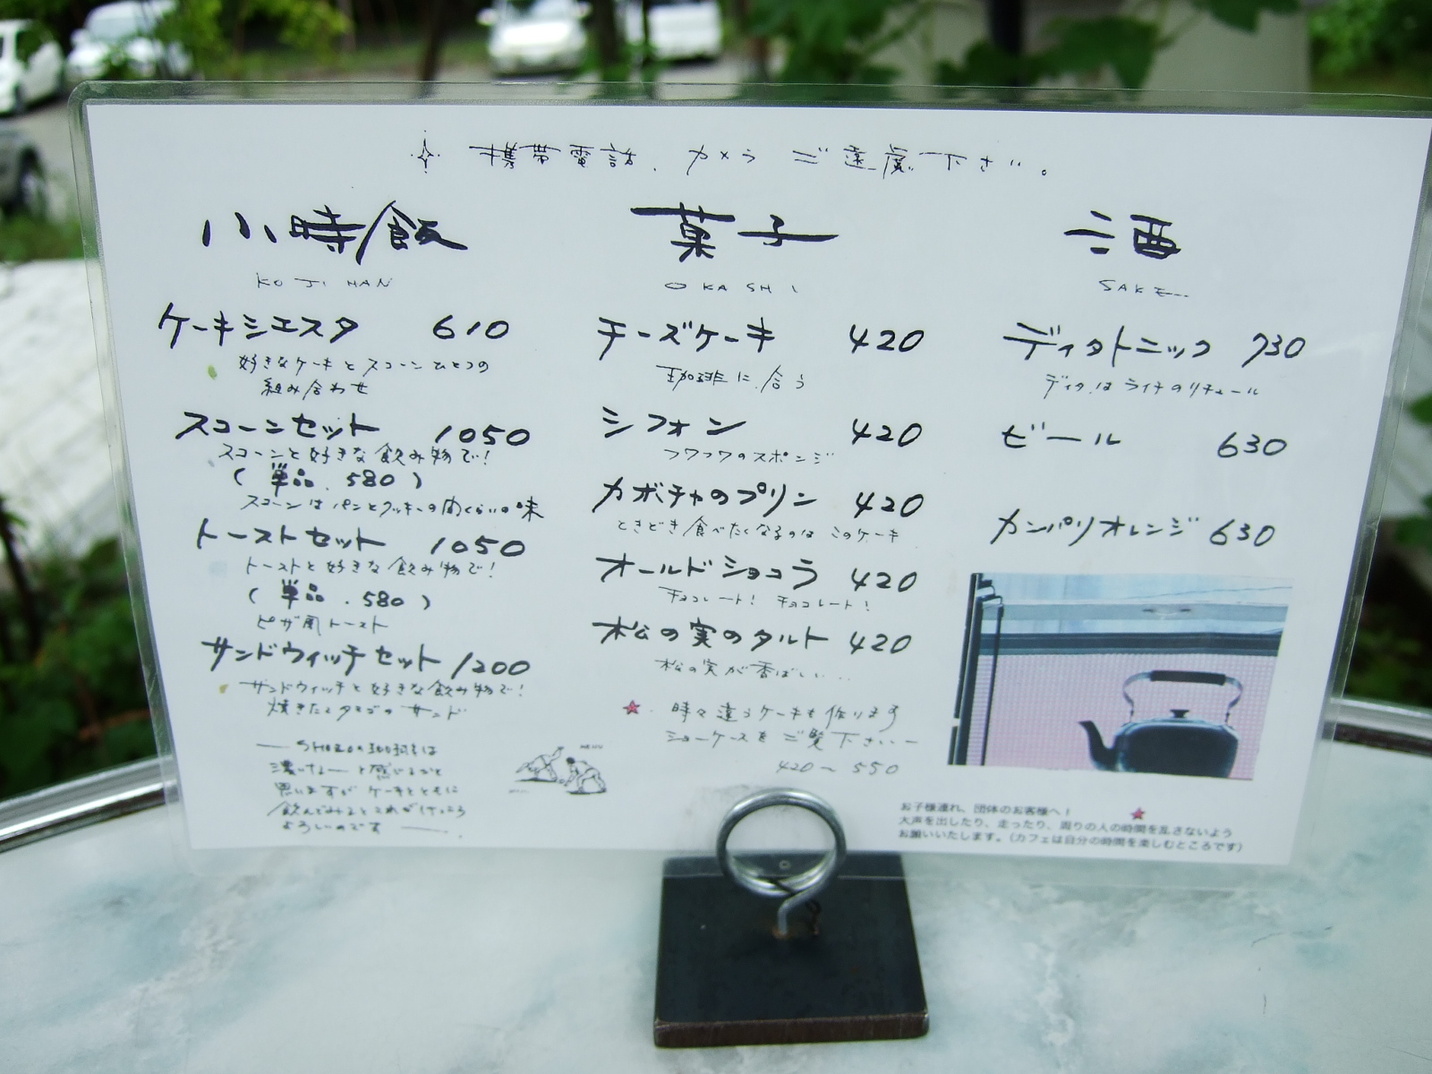 携帯電話、カメラ ご遠慮下さい。
小時飯
KOJIHAN
ケーキシエスタ 610
好きなケーキとスコーンひとつの
組み合わせ
スコーンセット 1050
スコーンと好きな飲み物で!
(単品.580)
スコーンはパンとクッキーの間くらいの味
トーストセット 1050
トーストと好きな飲み物で!
(単品.580)
ピザ風トースト
サンドウィッチセット 1200
サンドウィッチと好きな飲み物で!
焼きたくタマゴのサンド
の珈琲は
濃いなーと感じるかと
思いますが ケーキとともに
飲んでみるとこれがけっこう
よろしいのです
菓子
OKASHI
チーズケーキ 420
珈琲に合う
シフォン 420
フワフワのスポンジ
カボチャのプリン 420
ときどき食べたくなるのは このケーキ
オールドショコラ 420
チョコレート! チョコレート!
松の実のタルト 420
松の実が香ばしい...
時々違うケーキも作ります
ショーケースをご覧下さいー
420〜550
酒
SAKE
ディタトニック 730
ディタ.はライチのリキュール
ビール 630
カンパリオレンジ 630
お子様連れ、団体のお客様へ!
大声を出したり、走ったり、周りの人の時間を乱さないよう
お願いいたします。(カフェは自分の時間を楽しむところです)